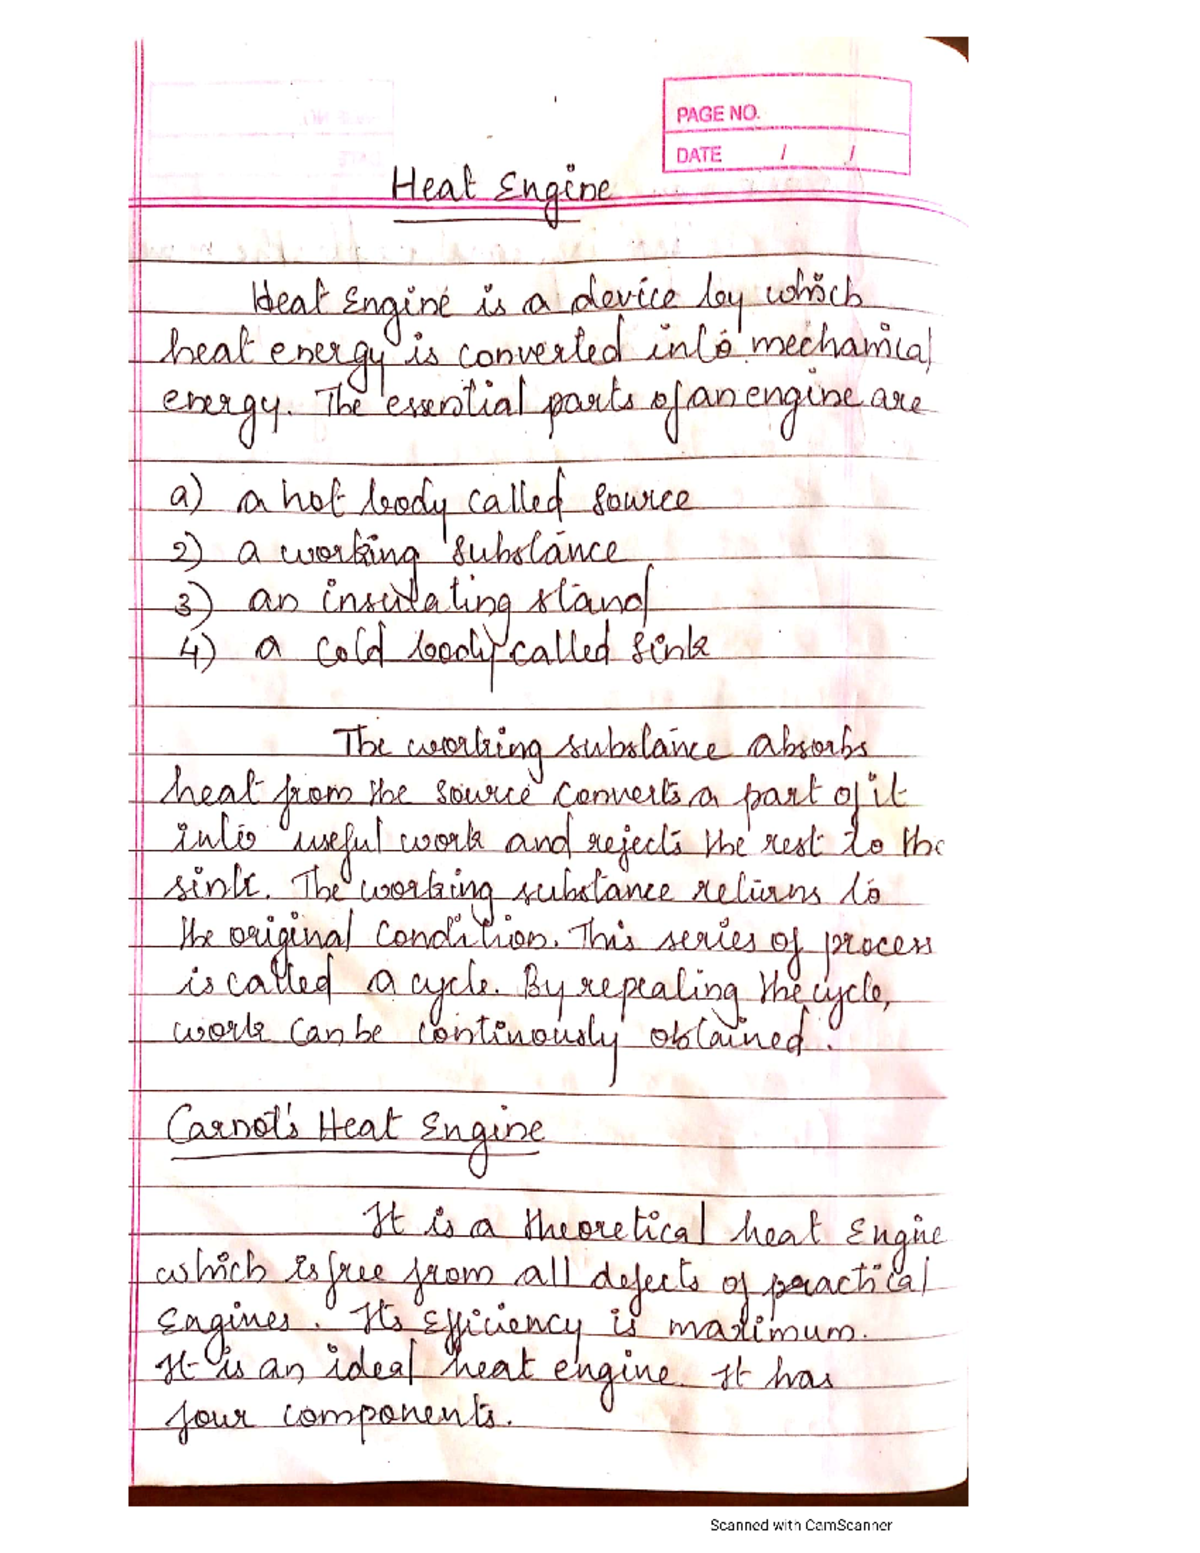 PAGE NO.
DATE / /
Heat Engine
Heat Engine is a device by which
heat energy is converted into mechanical
energy. The essential parts of an engine are
a) a hot body called source
2) a working substance
3) an insulating stand
4) a cold body called sink
The working substance absorbs
heat from the source converts a part of it
into useful work and rejects the rest to the
sink. The working substance returns to
the original condition. This series of process
is called a cycle. By repeating the cycle,
work can be continuously obtained.
Carnot's Heat Engine
It is a theoretical heat Engine
which is free from all defects of practical
Engines. Its Efficiency is maximum.
It is an ideal heat engine. It has
four components.
Scanned with CamScanner